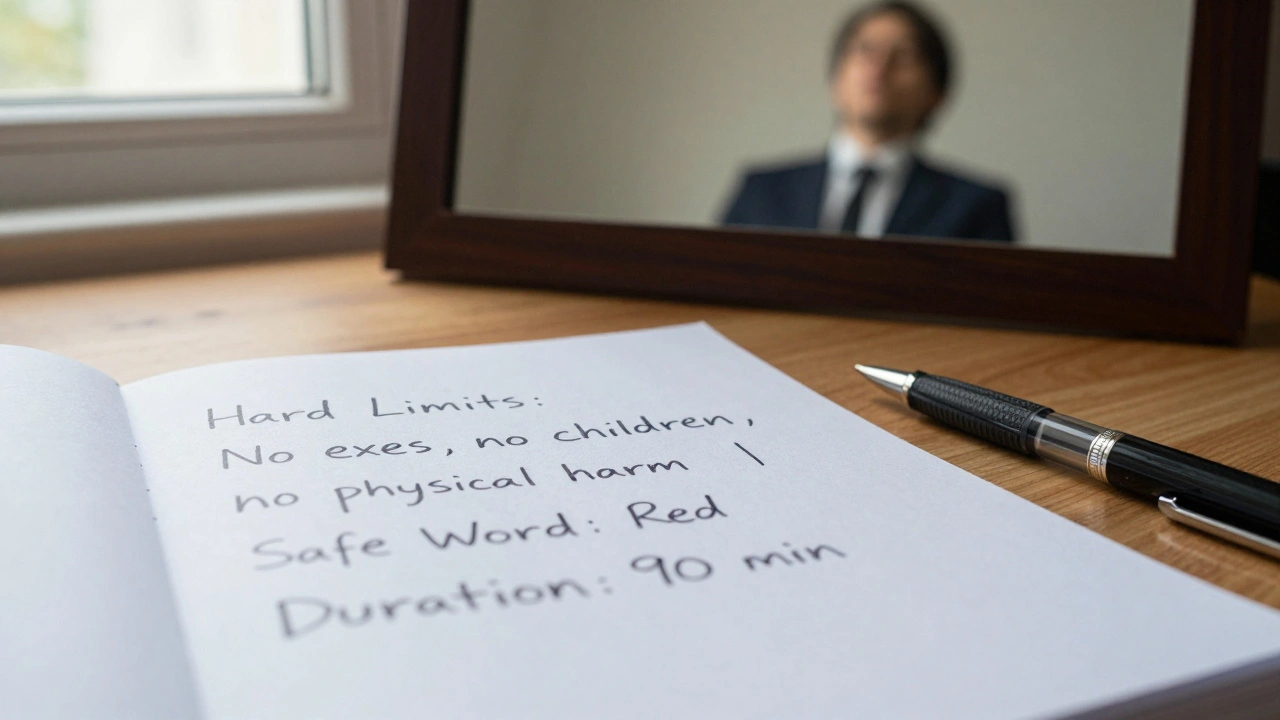 Hard Limits:
No exes, no children,
no physical harm \
Safe Word: Red
Duration: 90 min